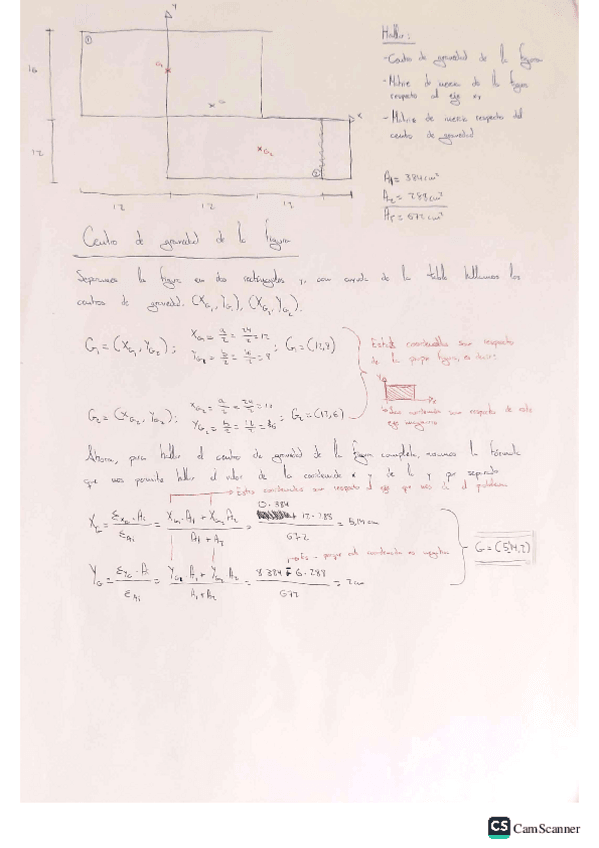 Y
Hallar:
- Centro de gravedad de la figura
- Matriz de inercia de la figura
respecto al eje xy
- Matriz de inercia respecto del
centro de gravedad
①
G₁
G
x
16
12
G₂
②
A₁ = 384 cm²
A₂ = 288 cm²
A_T = 672 cm²
12 12 12
Centro de gravedad de la figura
Separamos la figura en dos rectángulos y, con ayuda de la tabla hallamos los
centros de gravedad. (X_G₁, Y_G₁), (X_G₂, Y_G₂).
G₁ = (X_G₁, Y_G₂); X_G₁ = a/2 = 24/2 = 12
Y_G₁ = b/2 = 16/2 = 8 ; G₁ = (12,8)
Estas coordenadas son respecto
de la propia figura, es decir:
G₂ = (X_G₂, Y_G₂); X_G₂ = a/2 = 24/2 = 12
Y_G₂ = b/2 = 12/2 = 6 ; G₂ = (12,6)
Las coordenadas son respecto de este
eje imaginario
Ahora, para hallar el centro de gravedad de la figura completa, usamos la fórmula
que nos permite hallar el valor de la coordenada x y de la y por separado
Estas coordenadas son respecto al eje que nos da el problema
X_G = Σx_G · Ai / ΣAi = X_G₁ · A₁ + X_G₂ · A₂ / A₁ + A₂ = 0 · 384 + 12 · 288 / 672 = 5,14 cm
porque esta coordenada es negativa
Y_G = Σy_G · Ai / ΣAi = Y_G₁ · A₁ + Y_G₂ · A₂ / A₁ + A₂ = 8 · 384 - 6 · 288 / 672 = 2 cm
G = (5,14, 2)
CS CamScanner